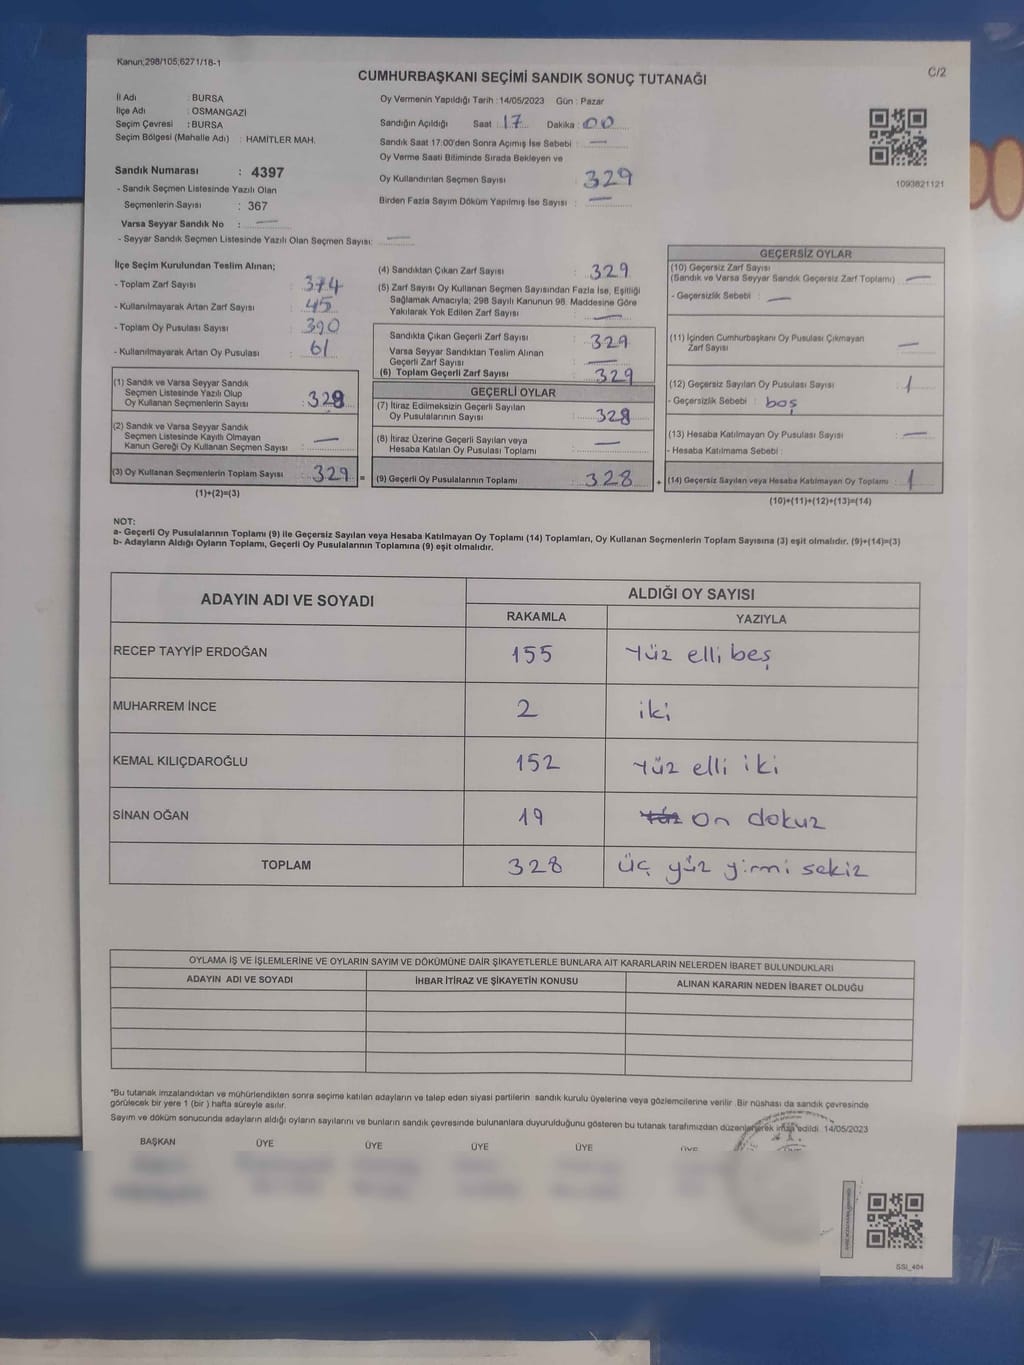 Kanun;298/105;6271/18-1
C/2
CUMHURBAŞKANI SEÇİMİ SANDIK SONUÇ TUTANAĞI
İl Adı : BURSA
İlçe Adı : OSMANGAZİ
Seçim Çevresi : BURSA
Seçim Bölgesi (Mahalle Adı) : HAMİTLER MAH.
Sandık Numarası : 4397
- Sandık Seçmen Listesinde Yazılı Olan
Seçmenlerin Sayısı : 367
Varsa Seyyar Sandık No : —
- Seyyar Sandık Seçmen Listesinde Yazılı Olan Seçmen Sayısı: —
Oy Vermenin Yapıldığı Tarih : 14/05/2023 Gün : Pazar
Sandığın Açıldığı Saat : 17 Dakika : 00
Sandık Saat 17:00'den Sonra Açımış İse Sebebi : —
Oy Verme Saati Bitiminde Sırada Bekleyen ve
Oy Kullandırılan Seçmen Sayısı : 329
Birden Fazla Sayım Döküm Yapılmış İse Sayısı : —
1093821121
İlçe Seçim Kurulundan Teslim Alınan;
- Toplam Zarf Sayısı : 374
- Kullanılmayarak Artan Zarf Sayısı : 45
- Toplam Oy Pusulası Sayısı : 390
- Kullanılmayarak Artan Oy Pusulası : 61
(1) Sandık ve Varsa Seyyar Sandık
Seçmen Listesinde Yazılı Olup
Oy Kullanan Seçmenlerin Sayısı : 329
(2) Sandık ve Varsa Seyyar Sandık
Seçmen Listesinde Kayıtlı Olmayan
Kanun Gereği Oy Kullanan Seçmen Sayısı : —
(3) Oy Kullanan Seçmenlerin Toplam Sayısı : 329 =
(1)+(2)=(3)
(4) Sandıktan Çıkan Zarf Sayısı : 329
(5) Zarf Sayısı Oy Kullanan Seçmen Sayısından Fazla İse, Eşitliği
Sağlamak Amacıyla; 298 Sayılı Kanunun 98. Maddesine Göre
Yakılarak Yok Edilen Zarf Sayısı : —
Sandıkta Çıkan Geçerli Zarf Sayısı : 329
Varsa Seyyar Sandıktan Teslim Alınan
Geçerli Zarf Sayısı : —
(6) Toplam Geçerli Zarf Sayısı : 329
GEÇERLİ OYLAR
(7) İtiraz Edilmeksizin Geçerli Sayılan
Oy Pusulalarının Sayısı : 328
(8) İtiraz Üzerine Geçerli Sayılan veya
Hesaba Katılan Oy Pusulası Toplamı : —
(9) Geçerli Oy Pusulalarının Toplamı : 328 +
GEÇERSİZ OYLAR
(10) Geçersiz Zarf Sayısı
(Sandık ve Varsa Seyyar Sandık Geçersiz Zarf Toplamı) : —
- Geçersizlik Sebebi : —
(11) İçinden Cumhurbaşkanı Oy Pusulası Çıkmayan
Zarf Sayısı : —
(12) Geçersiz Sayılan Oy Pusulası Sayısı : 1
- Geçersizlik Sebebi : boş
(13) Hesaba Katılmayan Oy Pusulası Sayısı : —
- Hesaba Katılmama Sebebi :
(14) Geçersiz Sayılan veya Hesaba Katılmayan Oy Toplamı : 1
(10)+(11)+(12)+(13)=(14)
NOT:
a- Geçerli Oy Pusulalarının Toplamı (9) ile Geçersiz Sayılan veya Hesaba Katılmayan Oy Toplamı (14) Toplamları, Oy Kullanan Seçmenlerin Toplam Sayısına (3) eşit olmalıdır. (9)+(14)=(3)
b- Adayların Aldığı Oyların Toplamı, Geçerli Oy Pusulalarının Toplamına (9) eşit olmalıdır.
ADAYIN ADI VE SOYADI ALDIĞI OY SAYISI
RAKAMLA YAZIYLA
RECEP TAYYİP ERDOĞAN 155 Yüz elli beş
MUHARREM İNCE 2 iki
KEMAL KILIÇDAROĞLU 152 Yüz elli iki
SİNAN OĞAN 19 On dokuz
TOPLAM 328 üç yüz yirmi sekiz
OYLAMA İŞ VE İŞLEMLERİNE VE OYLARIN SAYIM VE DÖKÜMÜNE DAİR ŞİKAYETLERLE BUNLARA AİT KARARLARIN NELERDEN İBARET BULUNDUKLARI
ADAYIN ADI VE SOYADI İHBAR İTİRAZ VE ŞİKAYETİN KONUSU ALINAN KARARIN NEDEN İBARET OLDUĞU
*Bu tutanak imzalandıktan ve mühürlendikten sonra seçime katılan adayların ve talep eden siyasi partilerin sandık kurulu üyelerine veya gözlemcilerine verilir. Bir nüshası da sandık çevresinde
görülecek bir yere 1 (bir ) hafta süreyle asılır.
Sayım ve döküm sonucunda adayların aldığı oyların sayılarını ve bunların sandık çevresinde bulunanlara duyurulduğunu gösteren bu tutanak tarafımızdan düzenlenerek imza edildi. 14/05/2023
BAŞKAN ÜYE ÜYE ÜYE ÜYE ÜYE
SSI_404